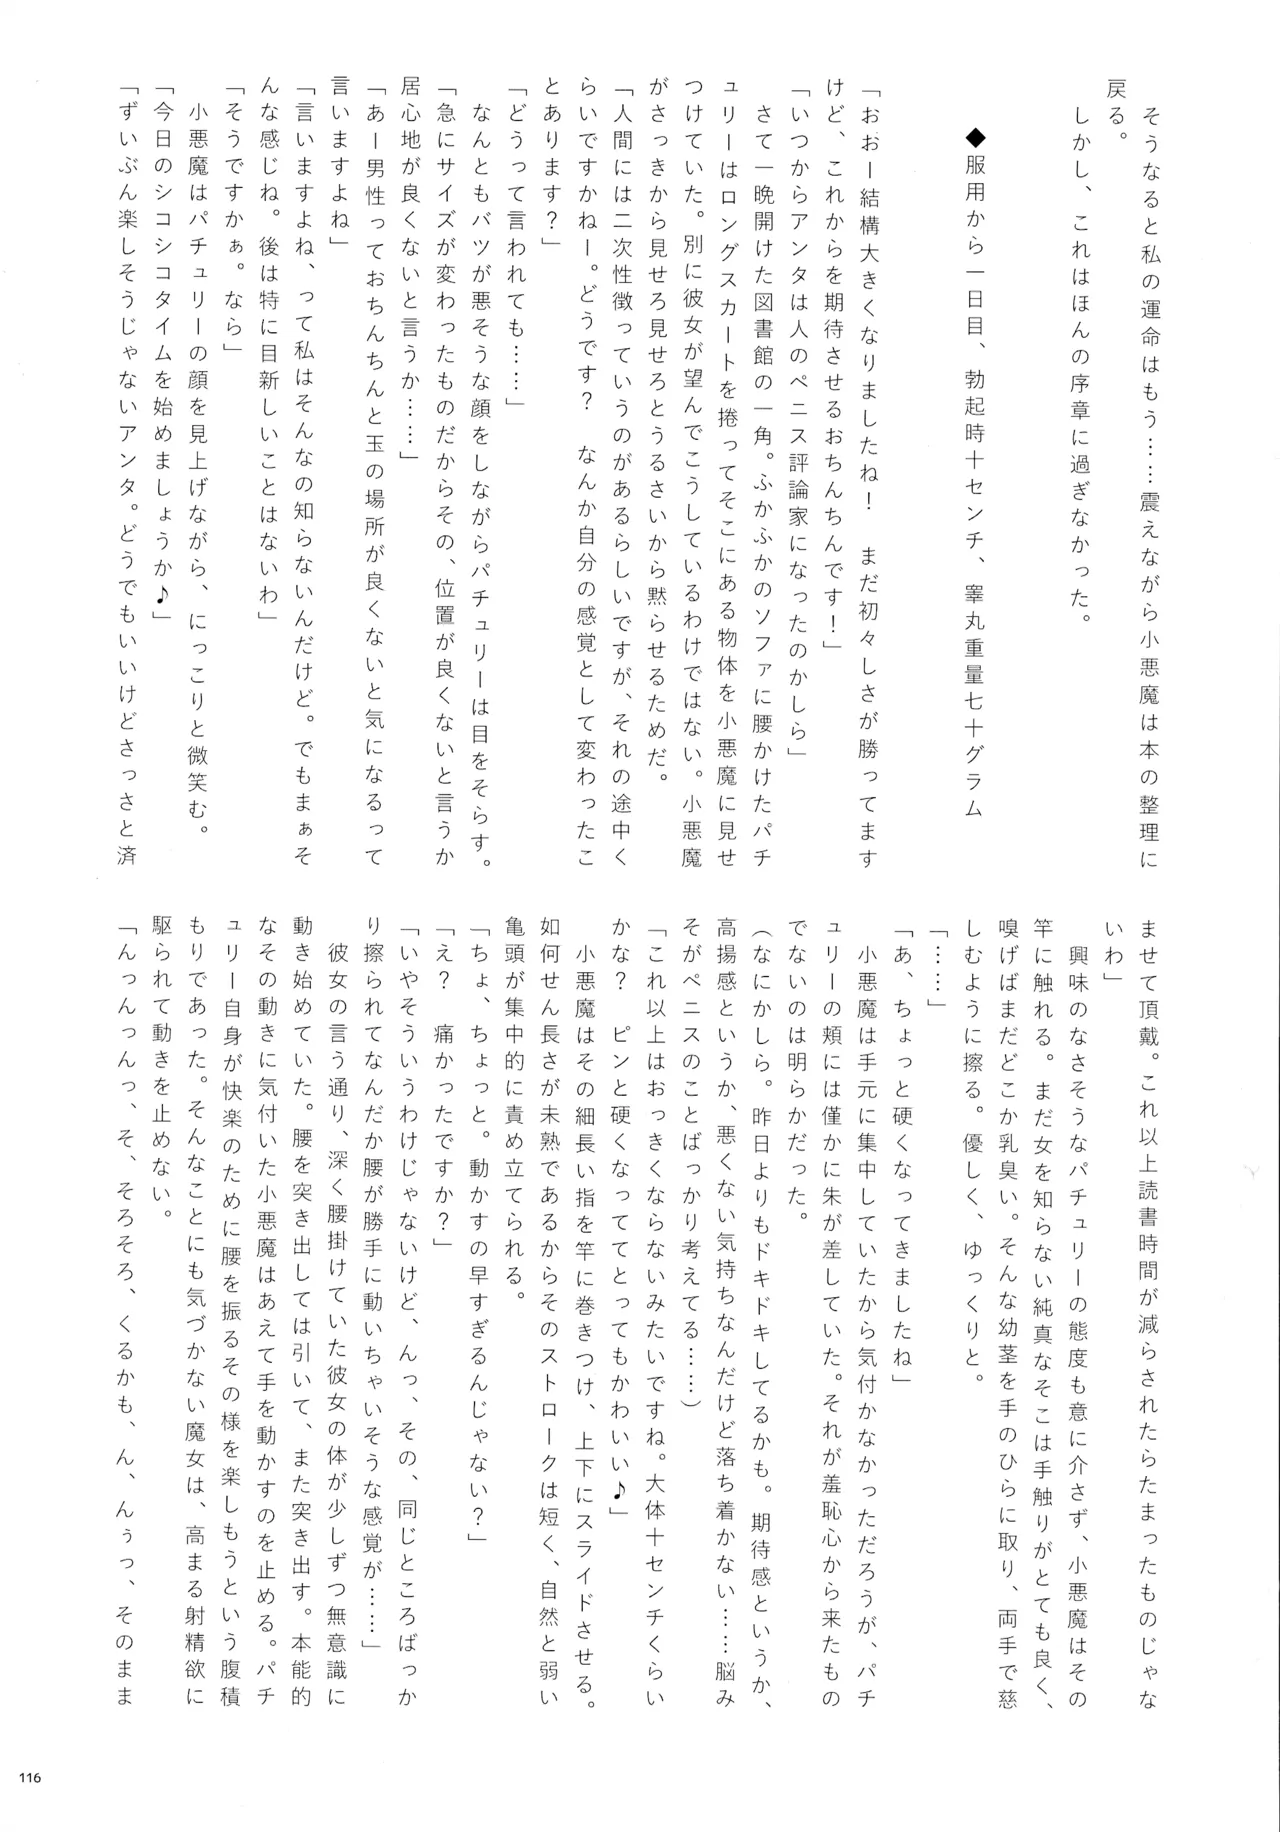 そうなると私の運命はもう……震えながら小悪魔は本の整理に
戻る。
　しかし、これはほんの序章に過ぎなかった。
◆服用から一日目、勃起時十センチ、睾丸重量七十グラム
「おおー結構大きくなりましたね！　まだ初々しさが勝ってます
けど、これからを期待させるおちんちんです！」
「いつからアンタは人のペニス評論家になったのかしら」
　さて一晩開けた図書館の一角。ふかふかのソファに腰かけたパチ
ュリーはロングスカートを捲ってそこにある物体を小悪魔に見せ
つけていた。別に彼女が望んでこうしているわけではない。小悪魔
がさっきから見せろ見せろとうるさいから黙らせるためだ。
「人間には二次性徴っていうのがあるらしいですが、それの途中く
らいですかねー。どうです？　なんか自分の感覚として変わったこ
とあります？」
「どうって言われても……」
　なんともバツが悪そうな顔をしながらパチュリーは目をそらす。
「急にサイズが変わったものだからその、位置が良くないと言うか
居心地が良くないと言うか……」
「あー男性っておちんちんと玉の場所が良くないと気になるって
言いますよね」
「言いますよね、って私はそんなの知らないんだけど。でもまぁそ
んな感じね。後は特に目新しいことはないわ」
「そうですかぁ。なら」
　小悪魔はパチュリーの顔を見上げながら、にっこりと微笑む。
「今日のシコシコタイムを始めましょうか♪」
「ずいぶん楽しそうじゃないアンタ。どうでもいいけどさっさと済
ませて頂戴。これ以上読書時間が減らされたらたまったものじゃな
いわ」
　興味のなさそうなパチュリーの態度も意に介さず、小悪魔はその
竿に触れる。まだ女を知らない純真なそこは手触りがとても良く、
嗅げばまだどこか乳臭い。そんな幼茎を手のひらに取り、両手で慈
しむように擦る。優しく、ゆっくりと。
「……」
「あ、ちょっと硬くなってきましたね」
　小悪魔は手元に集中していたから気付かなかっただろうが、パチ
ュリーの頬には僅かに朱が差していた。それが羞恥心から来たもの
でないのは明らかだった。
（なにかしら。昨日よりもドキドキしてるかも。期待感というか、
高揚感というか、悪くない気持ちなんだけど落ち着かない……脳み
そがペニスのことばっかり考えてる……）
「これ以上はおっきくならないみたいですね。大体十センチくらい
かな？　ピンと硬くなっててとってもかわいい♪」
　小悪魔はその細長い指を竿に巻きつけ、上下にスライドさせる。
如何せん長さが未熟であるからそのストロークは短く、自然と弱い
亀頭が集中的に責め立てられる。
「ちょ、ちょっと。動かすの早すぎるんじゃない？」
「え？　痛かったですか？」
「いやそういうわけじゃないけど、んっ、その、同じところばっか
り擦られてなんだか腰が勝手に動いちゃいそうな感覚が……」
　彼女の言う通り、深く腰掛けていた彼女の体が少しずつ無意識に
動き始めていた。腰を突き出しては引いて、また突き出す。本能的
なその動きに気付いた小悪魔はあえて手を動かすのを止める。パチ
ュリー自身が快楽のために腰を振るその様を楽しもうという腹積
もりであった。そんなことにも気づかない魔女は、高まる射精欲に
駆られて動きを止めない。
「んっんっんっ、そ、そろそろ、くるかも、ん、んぅっ、そのまま
116